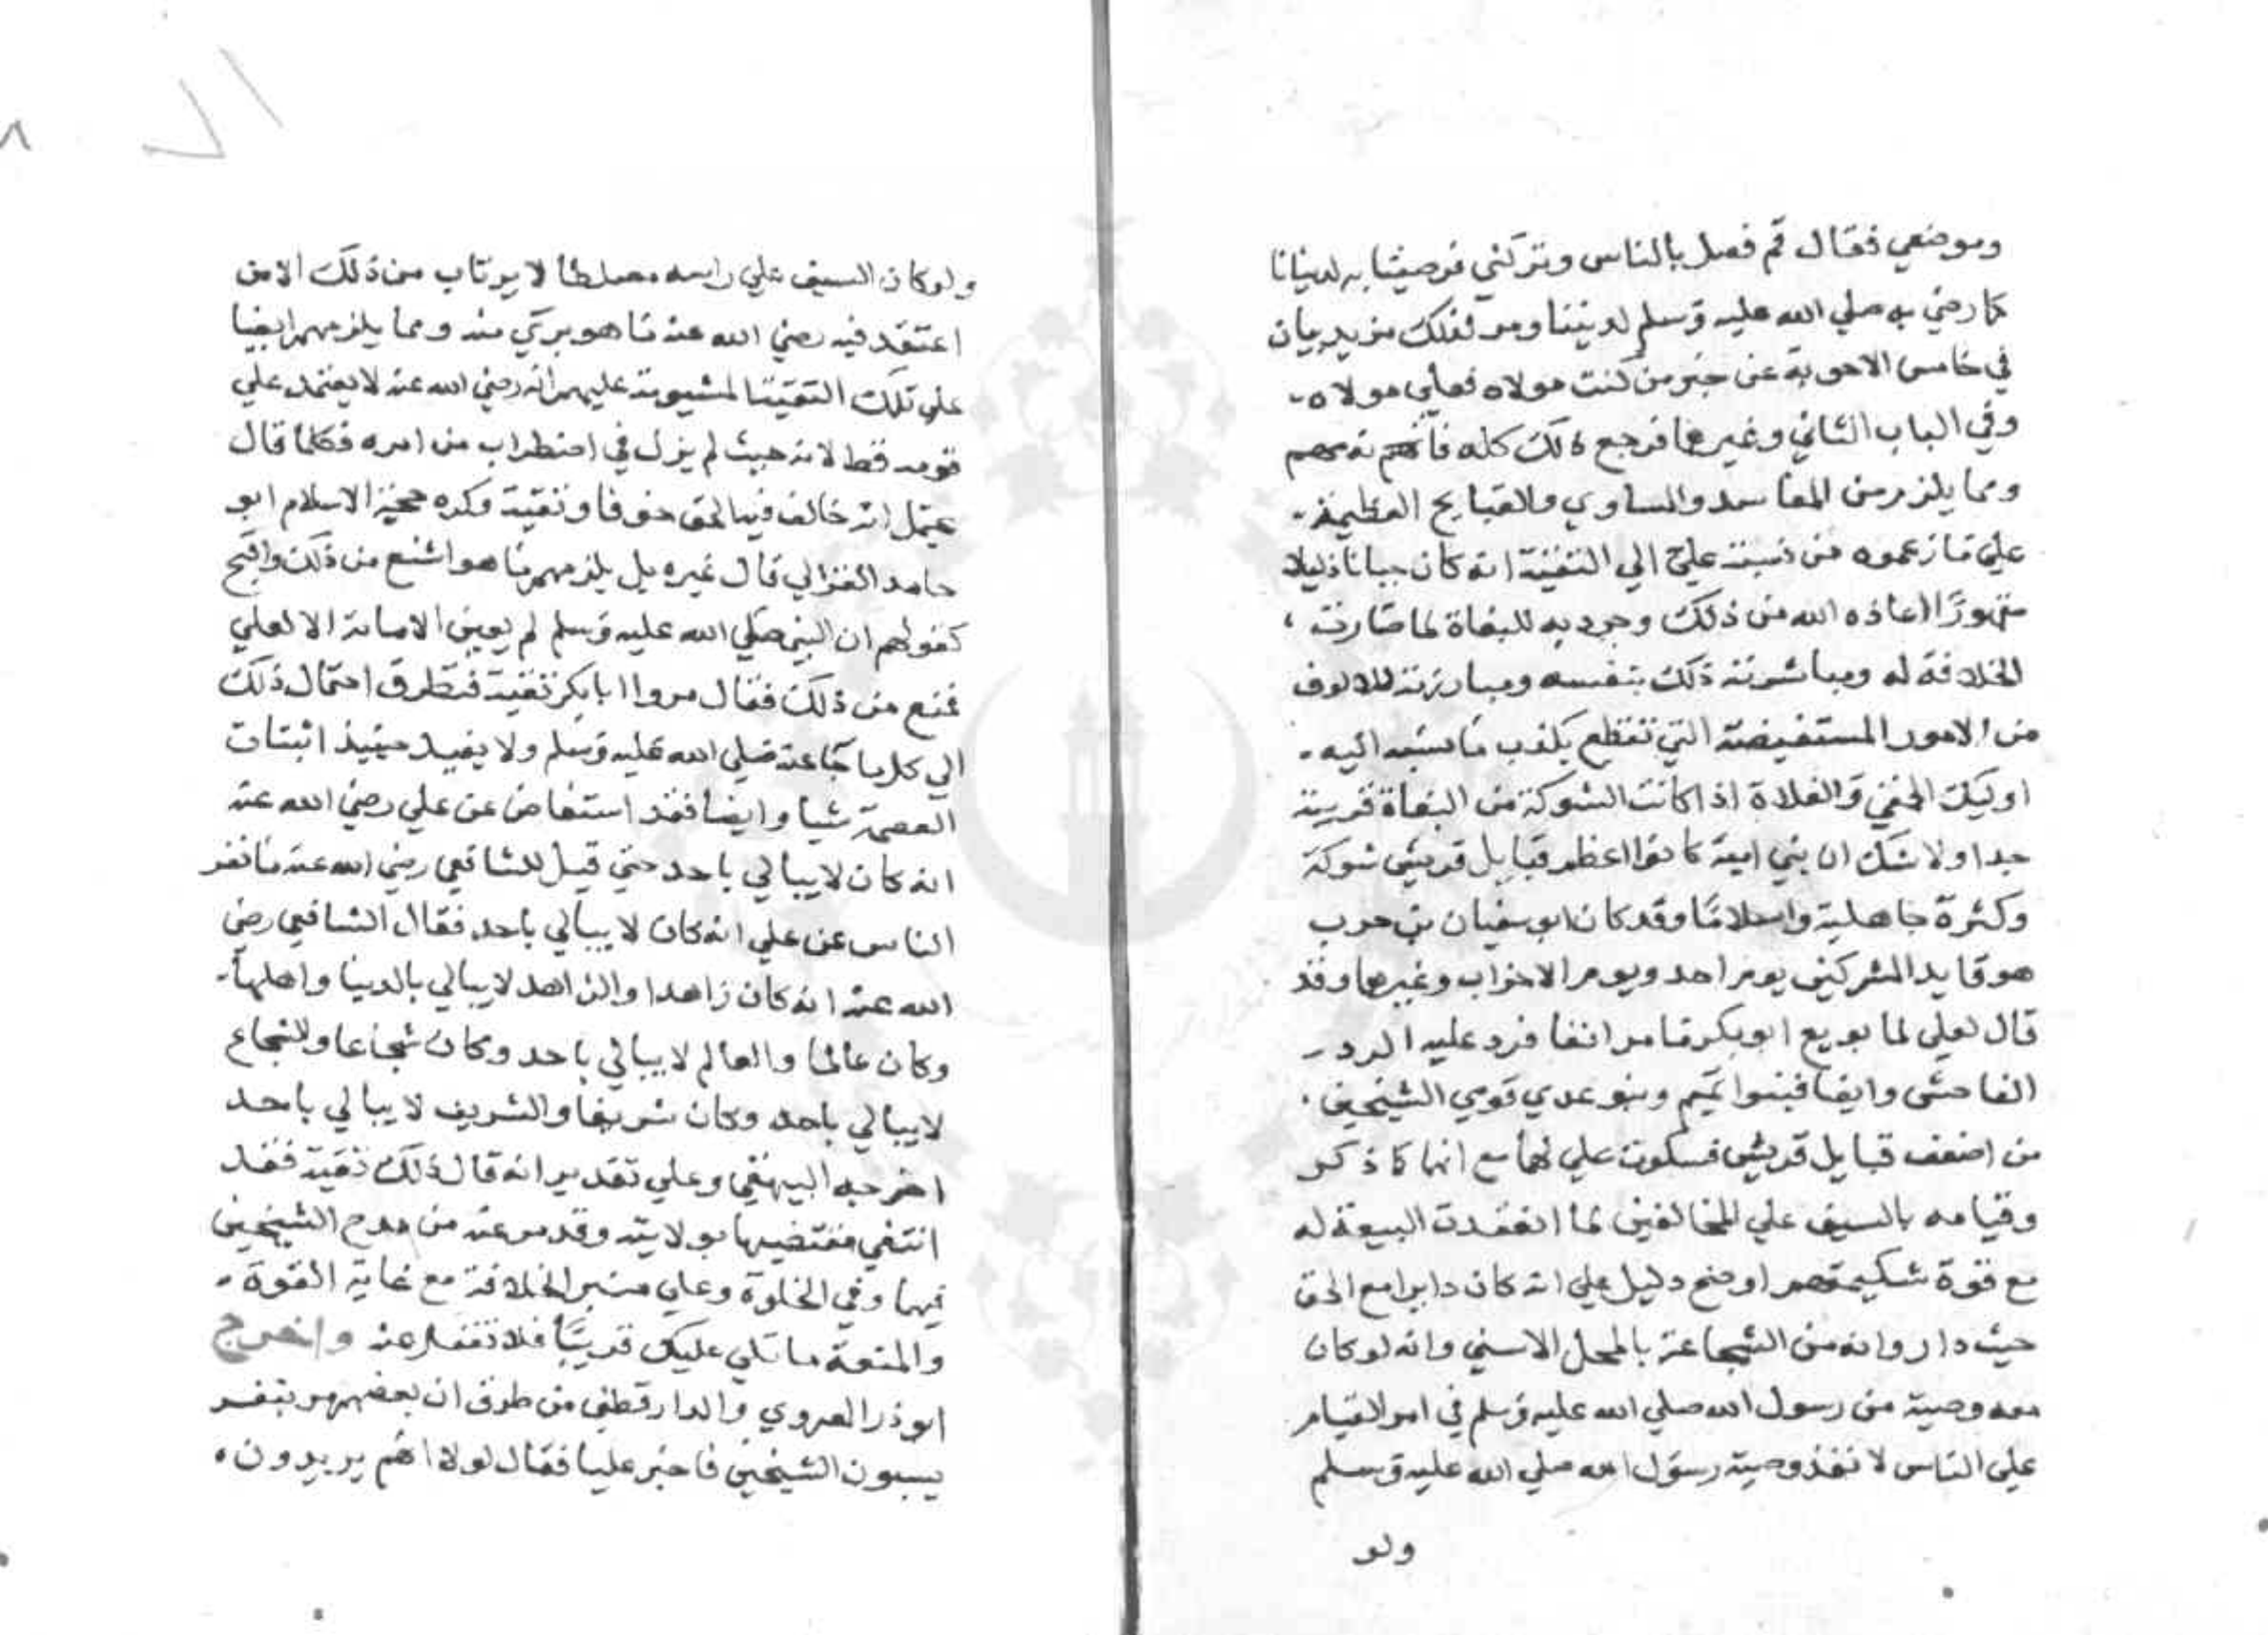 وموضعي فقال قم فصل بالناس وتركني فرضينا به لدنيانا
كما رضي به صلي الله عليه وسلم لديننا ومر في ذلك مزيد بيان
في خامس الاجوبة عن خبر من كنت مولاه فعلي مولاه
وفي الباب الثاني وغيرها فرجع ذلك كله فانه مهم
ومما يلزم من المفاسد والمساوي والقبايح العظيمة
علي ما زعموه من نسبة علي الي التقية انه كان جبانا ذليلا
مقهورا اعاذه الله من ذلك وحروبه للبغاة لما صارت
الخلافة له ومباشرته ذلك بنفسه ومبارزته للالوف
من الامور المستفيضة التي تقطع بكذب ما نسبه اليه
اوليك الحمقي والغلاة اذا كانت الشوكة من البغاة قوية
جدا ولا شك ان بني امية كانوا اعظم قبايل قريش شوكة
وكثرة جاهلية واسلاما وقد كان ابو سفيان بن حرب
هو قايد المشركين يوم احد ويوم الاحزاب وغيرها وقد
قال لعلي لما بويع ابو بكر ما مر انفا فرد عليه الرد
الفاحش وايضا فبنوا تميم وبنو عدي قومي الشيخين
من اضعف قبايل قريش فسكوت علي لهما مع انهما كما ذكر
وقيامه بالسيف علي المخالفين لما انعقدت البيعة له
مع قوة شكيمتهم اوضح دليل علي انه كان دايرا مع الحق
حيث دار وانه من الشجاعة بالمحل الاسني وانه لو كان
معه وصية من رسول الله صلي الله عليه وسلم في امر القيام
علي الناس لانفذ وصية رسول الله صلي الله عليه وسلم
ولو
ولو كان السيف علي راسه مصلطا لا يرتاب من ذلك الا من
اعتقد فيه رضي الله عنه ما هو بري منه ومما يلزمهم ايضا
علي تلك التقية المشيومة عليهم انه رضي الله عنه لا يعتمد علي
قوله قط لانه حيث لم يزل في اضطراب من امره فكلما قال
يحتمل انه خالف فيه الحق خوفا وتقية ذكره حجة الاسلام ابو
حامد الغزالي قال غيره بل يلزمهم ما هو اشنع من ذلك واقبح
كقولهم ان النبي صلي الله عليه وسلم لم يعين الامامة الا لعلي
فمنع من ذلك فقال مروا ابا بكر تقية فتطرق احتمال ذلك
الي كل ما جا عنه صلي الله عليه وسلم ولا يفيد حينيذ اثبتات
العصمة شيا وايضا فقد استفاض عن علي رضي الله عنه
انه كان لا يبالي باحد حتي قيل للشافعي رضي الله عنه ما نفر
الناس عن علي انه كان لا يبالي باحد فقال الشافعي رضي
الله عنه انه كان زاهدا والزاهد لا يبالي بالدنيا واهلها
وكان عالما والعالم لا يبالي باحد وكان شجاعا والشجاع
لا يبالي باحد وكان شريفا والشريف لا يبالي باحد
اخرجه البيهقي وعلي تقدير انه قال ذلك تقية فقد
انتفي مقتضيها بولايته وقد مر عنه من مدح الشيخين
فيها وفي الخلوة وعلي منبر الخلافة مع غاية القوة
والمنعة ما تلي عليك قريبا فلا تغفل عنه واخرج
ابو ذر الهروي والدارقطني من طرق ان بعضهم مر بنفر
يسبون الشيخين فاخبر عليا فقال لولا انهم يريدون